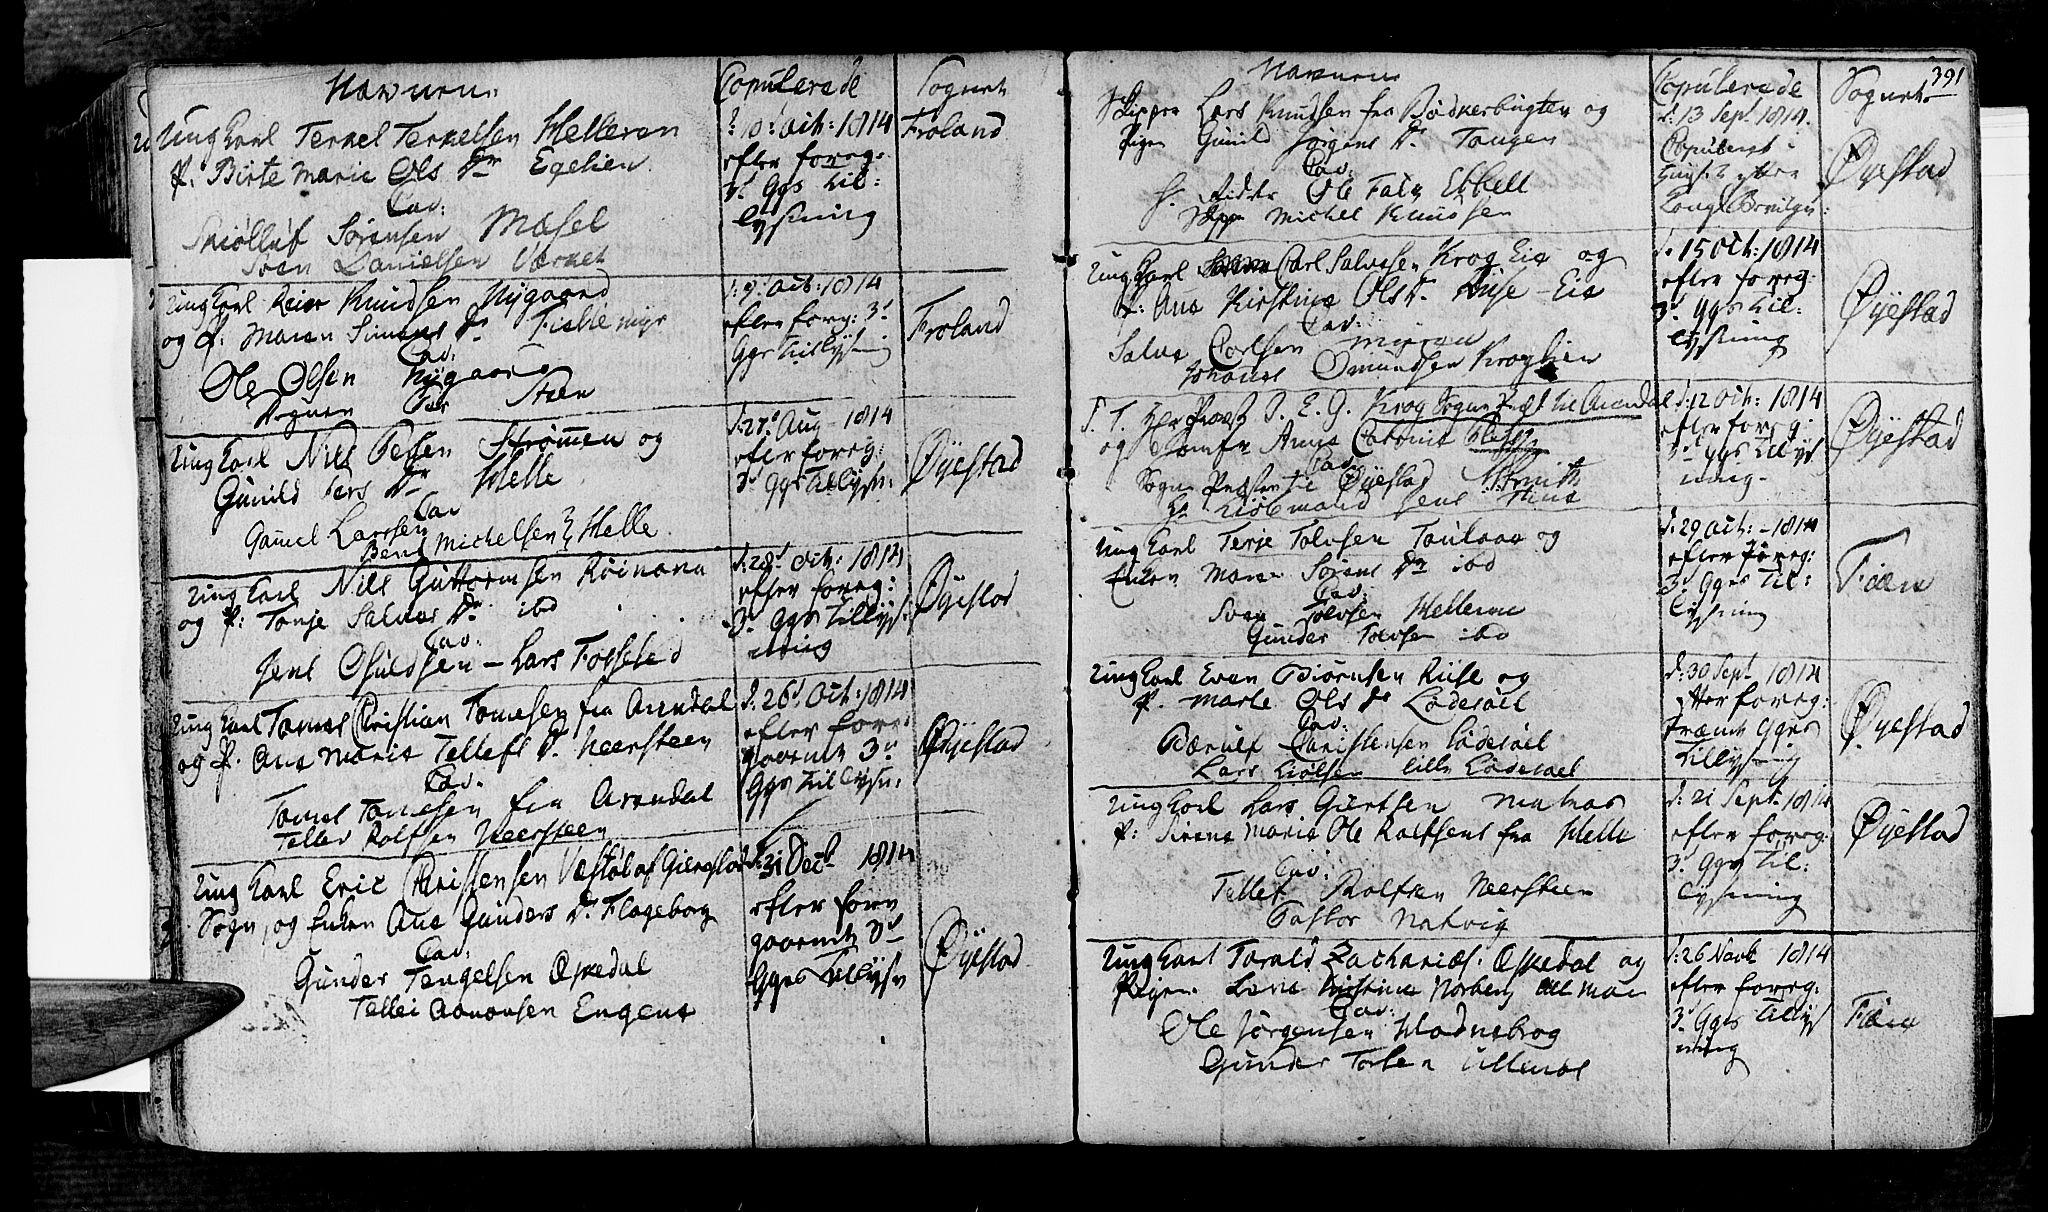 Navnene
Copulerede
Sognet
Ung Karl Terkel Terkelsen Helleren
P: Birte Marie Ols Dr Egelien
Cav:
Sørensen Mæsel
Sven Danielsen Værket
d: 10 Oct: 1814
efter foreg:
3de Ggs til:
lysning
Froland
Ung Karl Reier Knudsen Nygaard
og P: Maren Simens Dr
Cav:
Ole Olsen Nygaard
d: 9de Oct: 1814
efter foreg: 3de
Ggs tillysning
Froland
Ung Karl Nils Persen Strømmen og
Gunild Lars Dr Helle
Cav
Gamel Larssen
Bent Michelsen } Helle
d: 27de Aug 1814
efter foreg:
3de Ggs Tillysn:
Øyestad
Ung Karl Nils Guttormsen
og P: Tonje Salves Dr ibd
Cav:
Jens Osuldsen – Lars Fosselid
d: 28de Oct: 1814
efter foreg:
3de Ggs Tillys
ning
Øyestad
Ung Karl Tomas Christian Tomesen fra Arendal
og P. Ane Marie Tellefs D. Neersteen
Cav:
Tomes Tomesen fra Arendal
Tellef Rolfsen Neersteen
d: 26de Oct: 1814
efter fore
gaaende 3de
Ggs tillysn:
Øyestad
Ung Karl Eric Christensen Vestøl af Gierestad
Sogn, og Enken Ane Gunders Dr Flageborg
Cav:
Gunder Tengelsen Espedal
Tellef Aanonsen Engene
d: 31 Decb 1814
efter fore
gaaende 3de
Ggs Tillysn
Øyestad
391
Navnene
Copulerede
Sognet
Skipper Lars Knudsen fra Bødkerbugten og
Pigen Gunild Jørgens Dr Tangen
Cav:
Hr Ridder Ole Falk Ebbell
Skipp Michel Knudsen
d: 13 Sept 1814.
Copuleret i
Huuset efter
Kong: Bevilgn:
Øyestad
Ung Karl Carl Salvesen Krog Eie og
P: Ane Kirstine Ols Dr. Riise Eie
Cav:
Salve Carlsen Myren
Johannes Omundsen Kroglien
d: 15 Oct: 1814
efter foreg:
3de Ggs til:
lysning
Øyestad
S. T. Herr Provst P. E. G. Krog Sogne Præst til Arendal
og Jomfr Anne Catrine
Cav:
Sogne Præsten til Øyestad Hr Smith
Hr Kiøbmand Jens
d: 12 Oct: 1814
efter foreg:
3de Ggs tillys
ning
Øyestad
Ung Karl Terje Tolvsen og
Enken Maren Sørens Dr ibd
Cav:
Sven Tolvsen Hellerne
Gunder Tolvsen ibd
d: 29 Oct: 1814
efter foreg:
3de Ggs Til:
lysning
Fiære
Ung Karl Even Biørnsen Riise og
P. Marte Ols Dr Lødesøel
Cav:
Bærulf Christensen Lødesøel
Lars Lille Lødesøel
d: 30 Sept 1814
efter foreg:
trænde Ggrs
Tillysning
Øyestad
Ung Karl Lars Giertsen
P: Sirene Marie Ole Rolfsens fra Helle
Cav:
Tellef Rolfsen Neersteen
Pastor Natvig
d: 21 Sept. 1814
efter foreg:
3de Ggs Til:
lysning
Øyestad
Ung Karl Torald Zachariæs: Espedal og
Pigen Lene Kirstine Norberg
Cav:
Ole Jørgensen Hodnebrog
Gunder
d: 26 Novb 1814
efter foreg:
3de Ggs Tillys
ning
Fiære